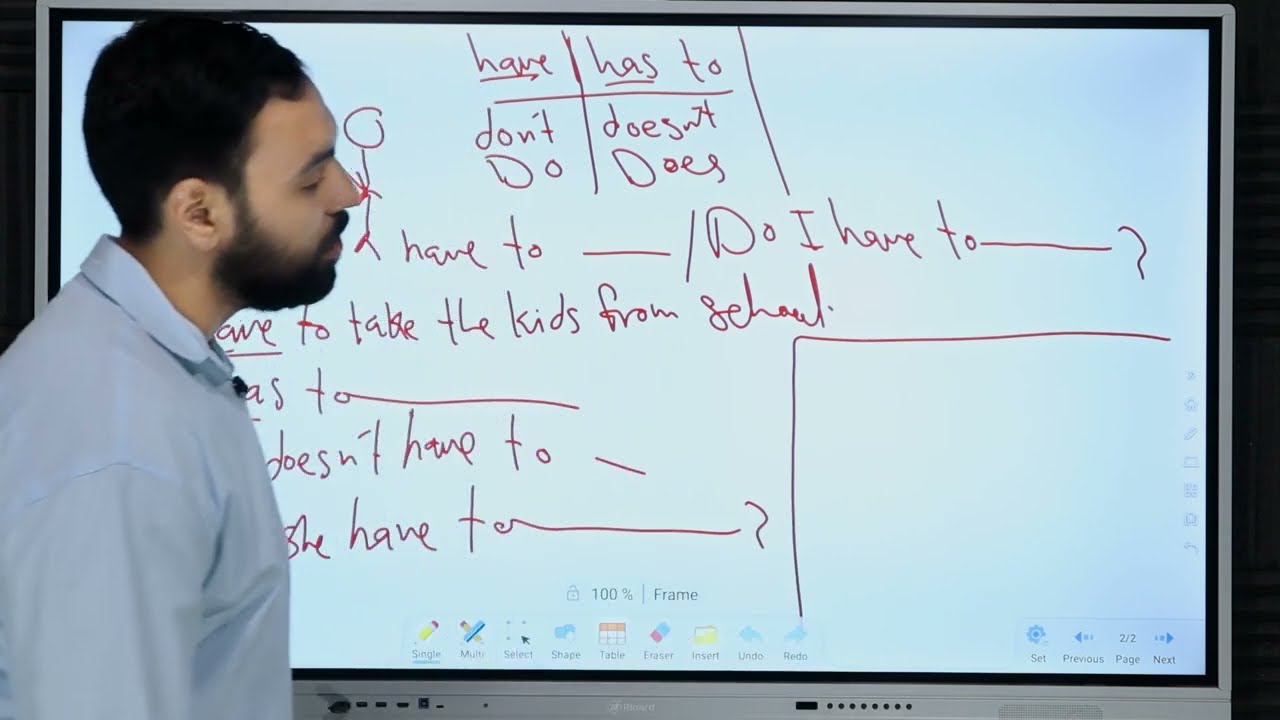 have | has to
don't | doesn't
Do | Does
have to ____ / Do I have to ____ ?
ave to take the kids from school.
as to ____
doesn't have to __
she have to ____ ?
100 % | Frame
Single Multi Select Shape Table Eraser Insert Undo Redo
2/2
Set Previous Page Next
iBoard